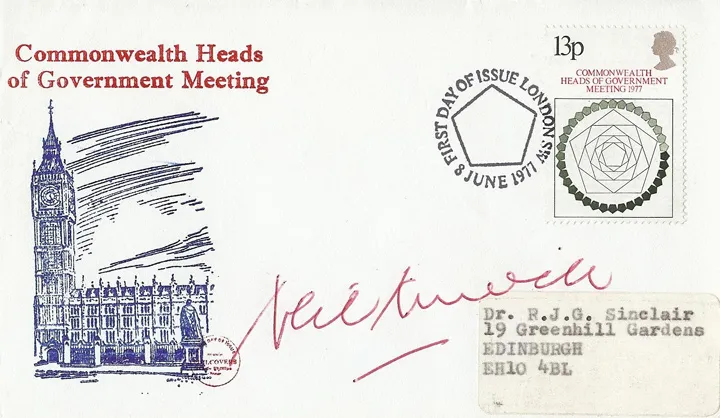 Commonwealth Heads
of Government Meeting
13p
COMMONWEALTH
HEADS OF GOVERNMENT
MEETING 1977
FIRST DAY OF ISSUE LONDON SW
8 JUNE 1977
Dr. R.J.G. Sinclair
19 Greenhill Gardens
EDINBURGH
EH10 4BL